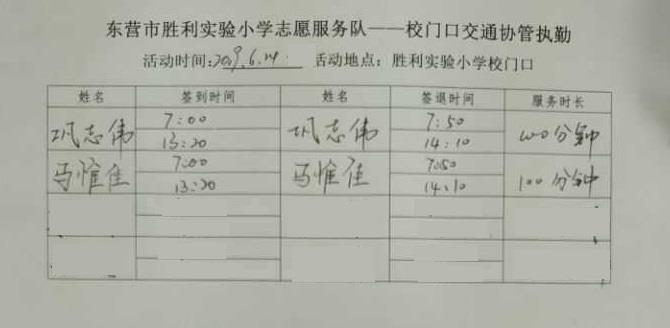 东营市胜利实验小学志愿服务队——校门口交通协管执勤
活动时间:2019.6.24. 活动地点：胜利实验小学校门口
姓名 签到时间 姓名 签退时间 服务时长
巩志伟 7:00 巩志伟 7:50 100分钟
13:20 14:10
马惟佳 7:00 马惟佳 7:50 100分钟
13:20 14:10